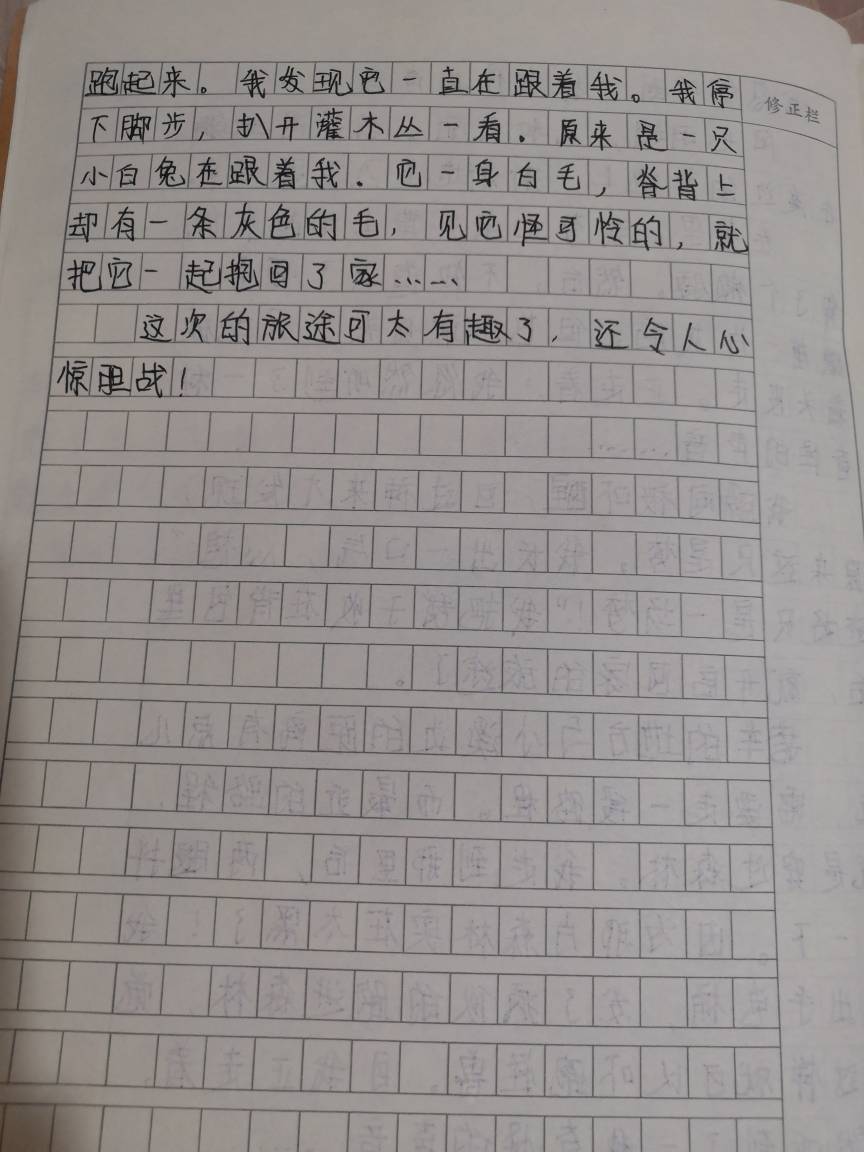 跑起来。我发现它一直在跟着我。我停
修正栏
下脚步，扒开灌木丛一看．原来是一只
小白兔在跟着我．它一身白毛，脊背上
却有一条灰色的毛，见它怪可怜的，就
把它一起抱回了家……
这次的旅途可太有趣了，还令人心
惊胆战！